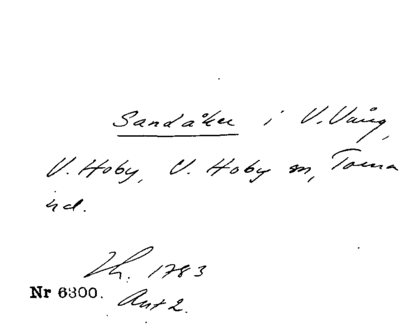 Sandåker i V. Vång,
V. Hoby, V. Hoby sn, Torna
hd.
Th. 1783
Nr 6300. Ant 2.